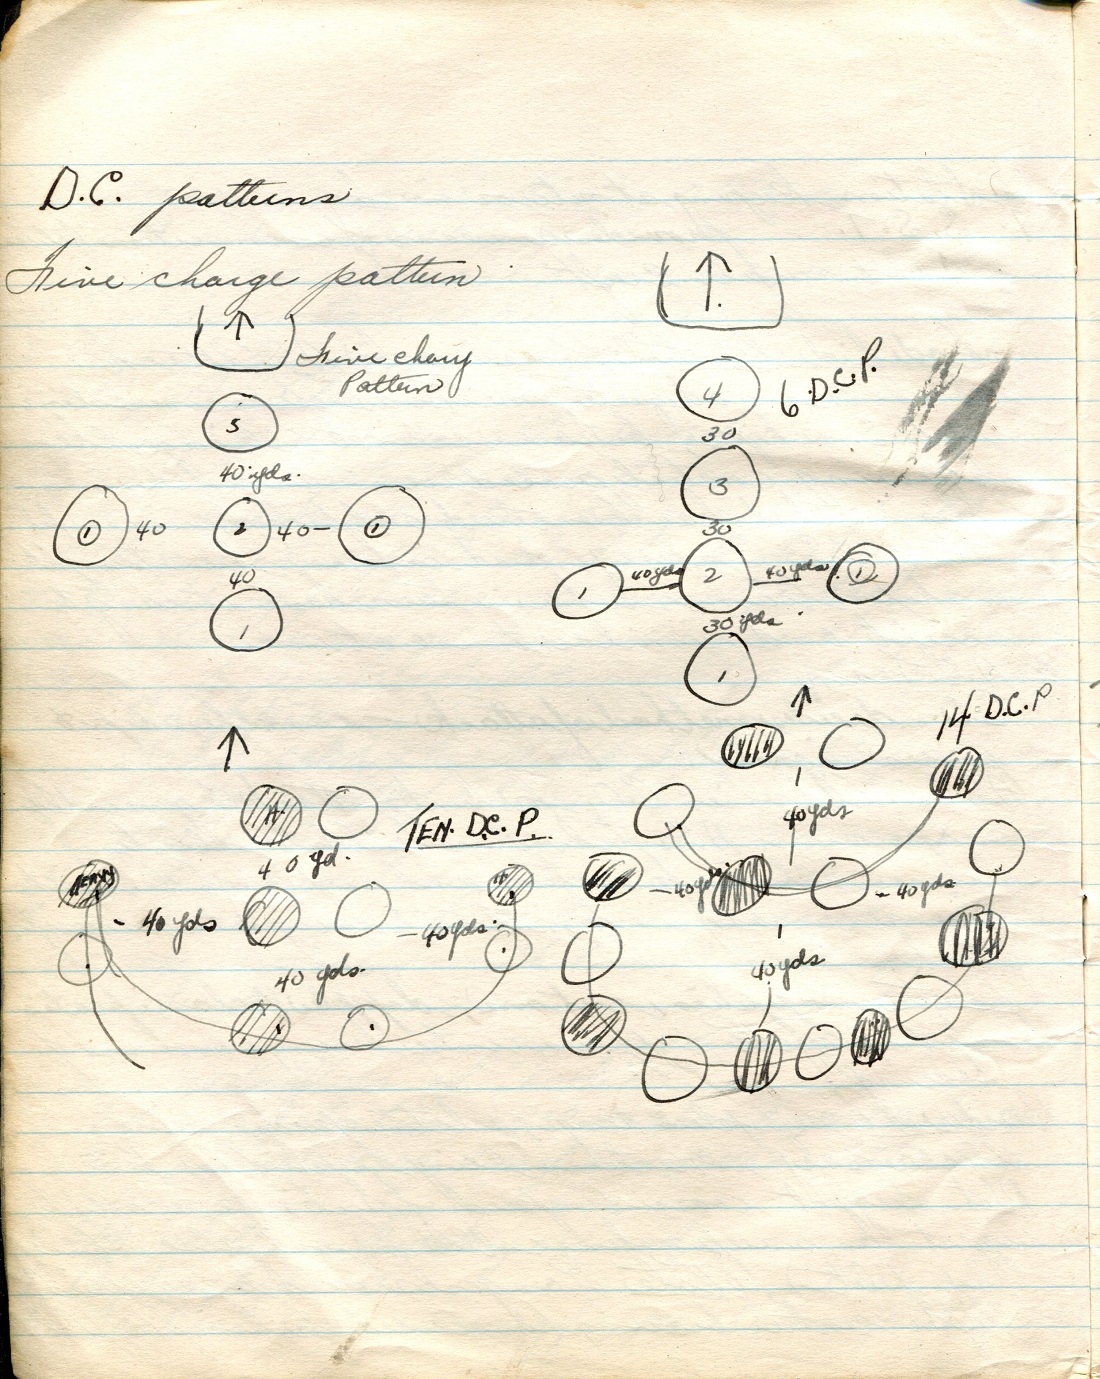 D.C. patterns
Five charge pattern
Five charg
Pattern
5
40 yds.
1 40 2 40 - 1
40
1
4 6 D.C.P.
30
3
30
1 40 yds 2 40 yds 1
30 yds.
1
14 D.C.P
40 yds
- 40 yds. - 40 yds
40 yds
TEN. D.C. P.
40 yd.
HEAVY
- 40 yds - 40 yds.
40 yds.